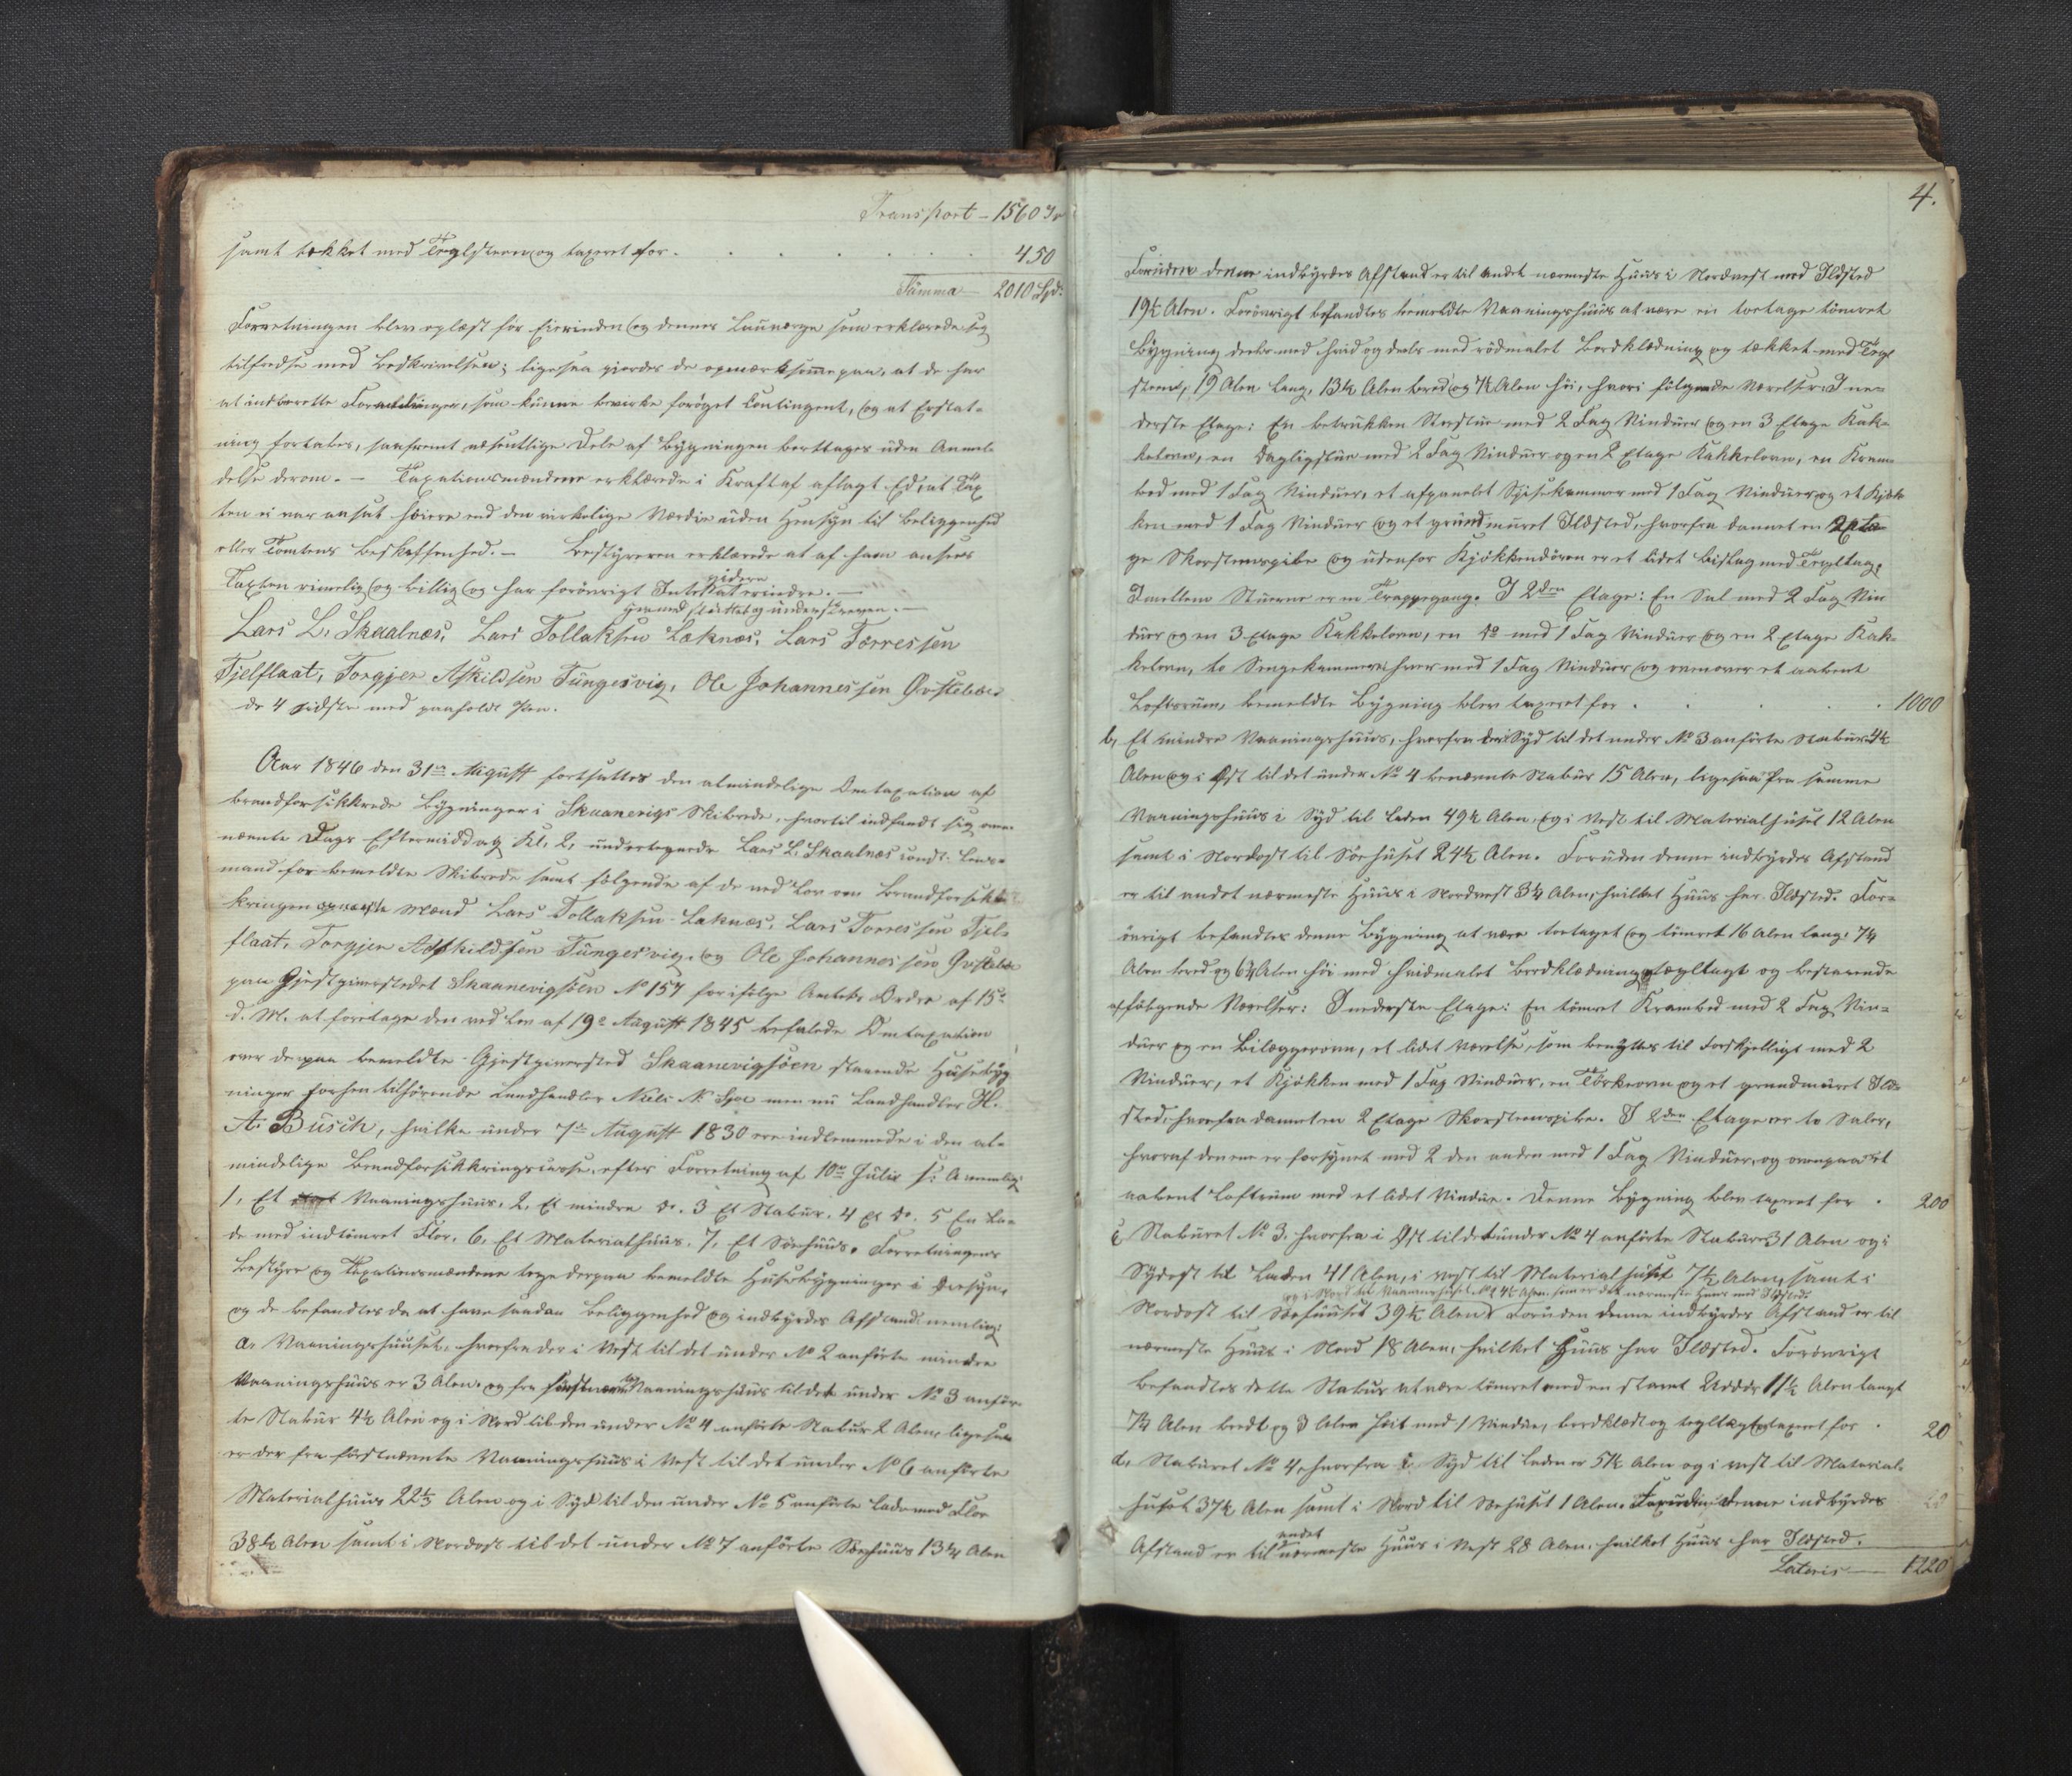 Transport – 1560 Sp
samt tækket med Teglsteen og taxeret for . . . . . . . 450
Summa – 2010 Spd:
Forretningen blev oplæst for Eierinden og dennes Laugværge som erklærede sig
tilfredse med Beskrivelsen; ligesaa gjordes de opmærksomme paa, at de har
at indberette Forandringer, som kunne bevirke forøget Contingent, og at Erstat-
ning fortabes, saafremt væsentlige Dele af Bygningen borttages uden Anmel-
delse derom. – Taxationsmændene erklærede i Kraft af aflagt Ed, at Tax
ten ei var ansat høiere end den virkelige Værdie uden Hensyn til Beliggenhed
eller Tomtens Beskaffenhed. – Bestyreren erklærede at af ham ansees
Taxten rimelig og billig og har forøvrigt Intet videre at erindre. –
Hermed sluttet og underskreven. –
Lars L. Skaalnæs, Lars Tollaksen Læknæs, Lars Torressen
Fjelflaat, Torgjer Askildsen Tungesvig, Ole Johannessen Qvitteber
de 4 sidste med paaholdt Pen.
Aar 1846 den 31te August fortsattes den almindelige Omtaxation af
brandforsikkrede Bygninger i Skaanevigs Skibrede, hvortil indfandt sig oven
nævnte Dags Eftermiddag Kl. 2, undertegnede Lars L. Skaalnæs const: Lens-
mand for bemeldte Skibrede samt følgende af de ved Lov om Brandforsik-
kringen opnævnte Mænd Lars Tollaksen Læknæs, Lars Torressen Fjel-
flaat, Torgjer Askildsen Tungesvig, og Ole Johannessen
paa Gjestgiverstedet Skaanevigsöen No 157 for ifølge Amtets Ordre af 15de
d. M. at foretage den ved Lov af 19de August 1845 befalede Omtaxation
over de paa bemeldte Gjestgiversted Skaanevigsöen staaende Huusebyg
ninger forhen tilhörende Landhandler Niels N. men nu Landhandler H.
A. Büsch, hvilke under 7de August 1830 ere indlemmede i den al-
mindelige Brandforsikkringscasse, efter Forretning af 10de Julii s: A nemlig:
1, Et Vaaningshuus, 2, Et mindre do. 3 Et Stabur, 4 Et do. 5 En La-
de med indtömret Flor, 6, Et Materialhuus, 7, Et Söehuus. Forretningens
Bestyre og Taxationsmændene toge derpaa bemeldte Huusebygninger i Øiesyn,
og de befandtes da at have saadan Beliggenhed og indbyrdes Afstand nemlig:
a, Vaaningshuuset, hvorfra der i Vest til det under No 2 anförte mindre
Vaaningshuus er 3 Alen, og fra förstnævnte Vaaningshuus til det under No 3 anför-
te Stabur 4½ Alen og i Nord til den under No 4 anförte Stabur 2 Alen, ligesaa
er der fra förstnævnte Vaaningshuus i Vest til det under No 6 anförte
Materialhuus 22⅓ Alen og i Syd til den under No 5 anförte Lade med Flor
38½ Alen samt i Nordost til det under No 7 anförte Söehuus 13¼ Alen
4.
Foruden denne indbyrdes Afstand er til andet nærmeste Huus i Nordvest med Ildsted
19½ Alen. Forövrigt befandtes bemeldte Vaaningshuus at være en toetage tömret
Bygning deels med hvid og deels med rödmalet Bordklædning og tækket med Tegl
steen, 19 Alen lang, 13½ Alen bred og 7½ Alen höi, hvori følgende Værelser: I ne-
derste Etage: En betrukken Storstue med 2 Fag Vinduer og en 3 Etage Kak-
kelovn, en Dagligstue med 2 Fag Vinduer og en 2 Etage Kakkelovn, en Kram-
bod med 1 Fag Vinduer, et afpanelet Spisekammer med 1 Fag Vinduer og et Kjök-
ken med 1 Fag Vinduer og et grundmuret Ildsted, hvorfra dannet en 2 Eta-
ge Skorstenspibe og udenfor Kjökkendören er et lidet Bislag med Tegltag.
Imellem Stuerne er en Trappegang. I 2den Etage: En Sal med 2 Fag Vin
duer og en 3 Etage Kakkelovn, en do med 1 Fag Vinduer og en 2 Etage Kak-
kelovn, to Sengekammere hver med 1 Fag Vinduer og ovenover et aabent
Loftsrum, bemeldte Bygning blev taxeret for . . . . 1000
b, Et mindre Vaaningshuus, hvorfra der i Syd til det under No 3 anförte Stabur 4½
Alen og i Öst til det under No 4 benævnte Stabur 15 Alen, ligesaa fra samme
Vaaningshuus i Syd til Laden 49½ Alen, og i Vest til Materialhuset 12 Alen
samt i Nordost til Söehuset 24½ Alen. Foruden denne indbyrdes Afstand
er til andet nærmeste Huus i Nordvest 3¼ Alen, hvilket Huus har Ildsted. For-
övrigt befandtes denne Bygning at være toetaget og tömret 16 Alen lang, 7¼
Alen bred og 6¼ Alen höi med hvidmalet Bordklædning, tegltagt og bestaaende
af følgende Værelser: I nederste Etage: En tömret Krambod med 2 Fag Vin-
duer og en Bilæggerovn, et lidet Værelse, som benyttes til Forskjelligt med 2
Vinduer, et Kjökken med 1 Fag Vinduer, en Törkeovn og et grundmuret Ild-
sted, hvorfra dannet en 2 Etage Skorstenspibe. I 2den Etage er to Saler,
hvoraf den ene er forsynet med 2 den anden med 1 Fag Vinduer, og ovenpaa et
aabent Loftrum med et lidet Vindue. Denne Bygning blev taxeret for . 200
c, Staburet No 3, hvorfra i Öst til det under No 4 anförte Stabur 31 Alen og i
Sydost til Laden 41 Alen, i Vest til Materialhuset 7½ Alen, samt i
og i Nord til Vaaningshuset No 1 4½ Alen, som er det nærmeste Huus med Ildsted.
Nordost til Söehuuset 39½ Alen. Foruden denne indbyrdes Afstand er til
nærmeste Huus i Nord 18 Alen, hvilket Huus har Ildsted. Forövrigt
befandtes dette Stabur at være tömret med en 11½ Alen langt
7¼ Alen bredt og 3 Alen höit med 1 Vindue, bordklædt og tegltagt, taxeret for . 20
d, Staburet No 4, hvorfra i Syd til Laden er 51½ Alen og i Vest til Material-
huset 37½ Alen samt i Nord til Söehuset 1 Alen. Foruden denne indbyrdes
Afstand er til andet nærmeste Huus i Vest 28 Alen, hvilket Huus har Ildsted.
Lateris – 1220